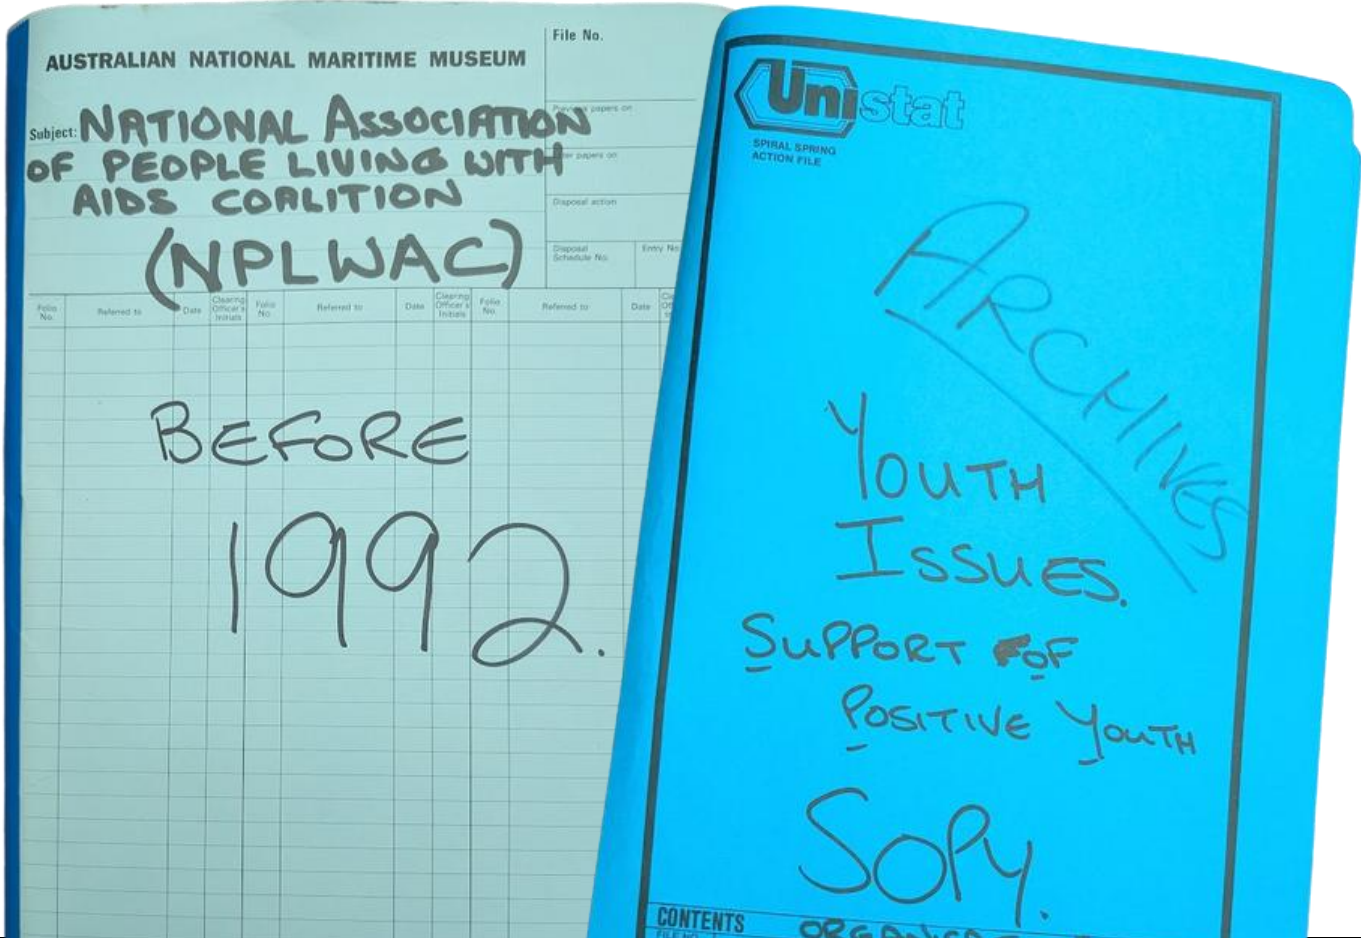 AUSTRALIAN NATIONAL MARITIME MUSEUM
File No.
Previous papers on
Subject: NATIONAL ASSOCIATION
OF PEOPLE LIVING WITH
papers on
AIDS COALITION
Disposal action
(NPLWAC)
Disposal
Schedule No.
Entry No
Folio No. Referred to Date Clearing Officer's Initials Folio No. Referred to Date Clearing Officer's Initials Folio No. Referred to Date
BEFORE
1992.
Unistat
SPIRAL SPRING
ACTION FILE
ARCHIVES
YOUTH
ISSUES.
SUPPORT OF
POSITIVE YOUTH
SOPY.
CONTENTS
FILE NO.